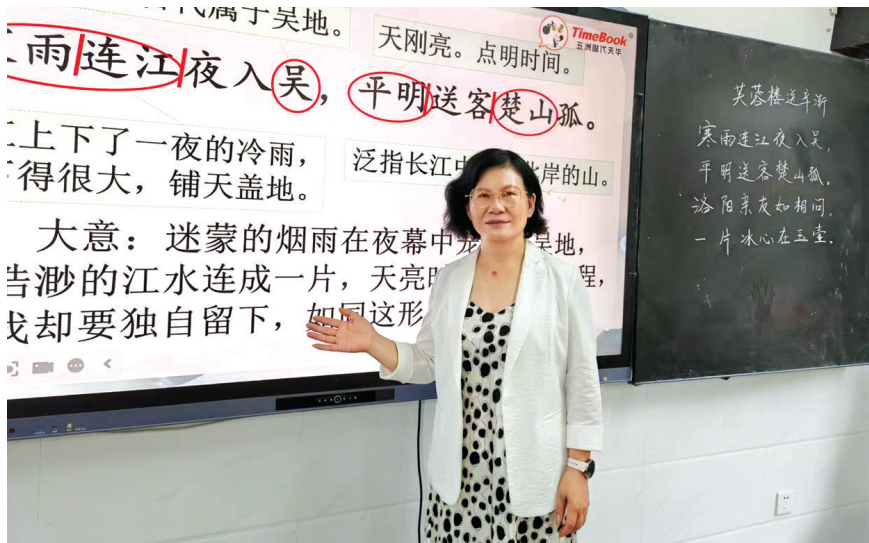 代属于吴地。
天刚亮。点明时间。
TimeBook
五洲时代天华
雨连江夜入吴，平明送客楚山孤。
上下了一夜的冷雨，
得很大，铺天盖地。
泛指长江中
岸的山。
大意：迷蒙的烟雨在夜幕中
吴地，
浩渺的江水连成一片，天亮
程，
我却要独自留下，如同这形
芙蓉楼送辛渐
寒雨连江夜入吴，
平明送客楚山孤。
洛阳亲友如相问，
一片冰心在玉壶.